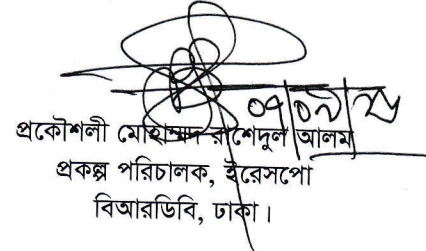 ০৭/০৯/২১
প্রকৌশলী মোহাম্মদ রাশেদুল আলম
প্রকল্প পরিচালক, ইরেসপো
বিআরডিবি, ঢাকা।